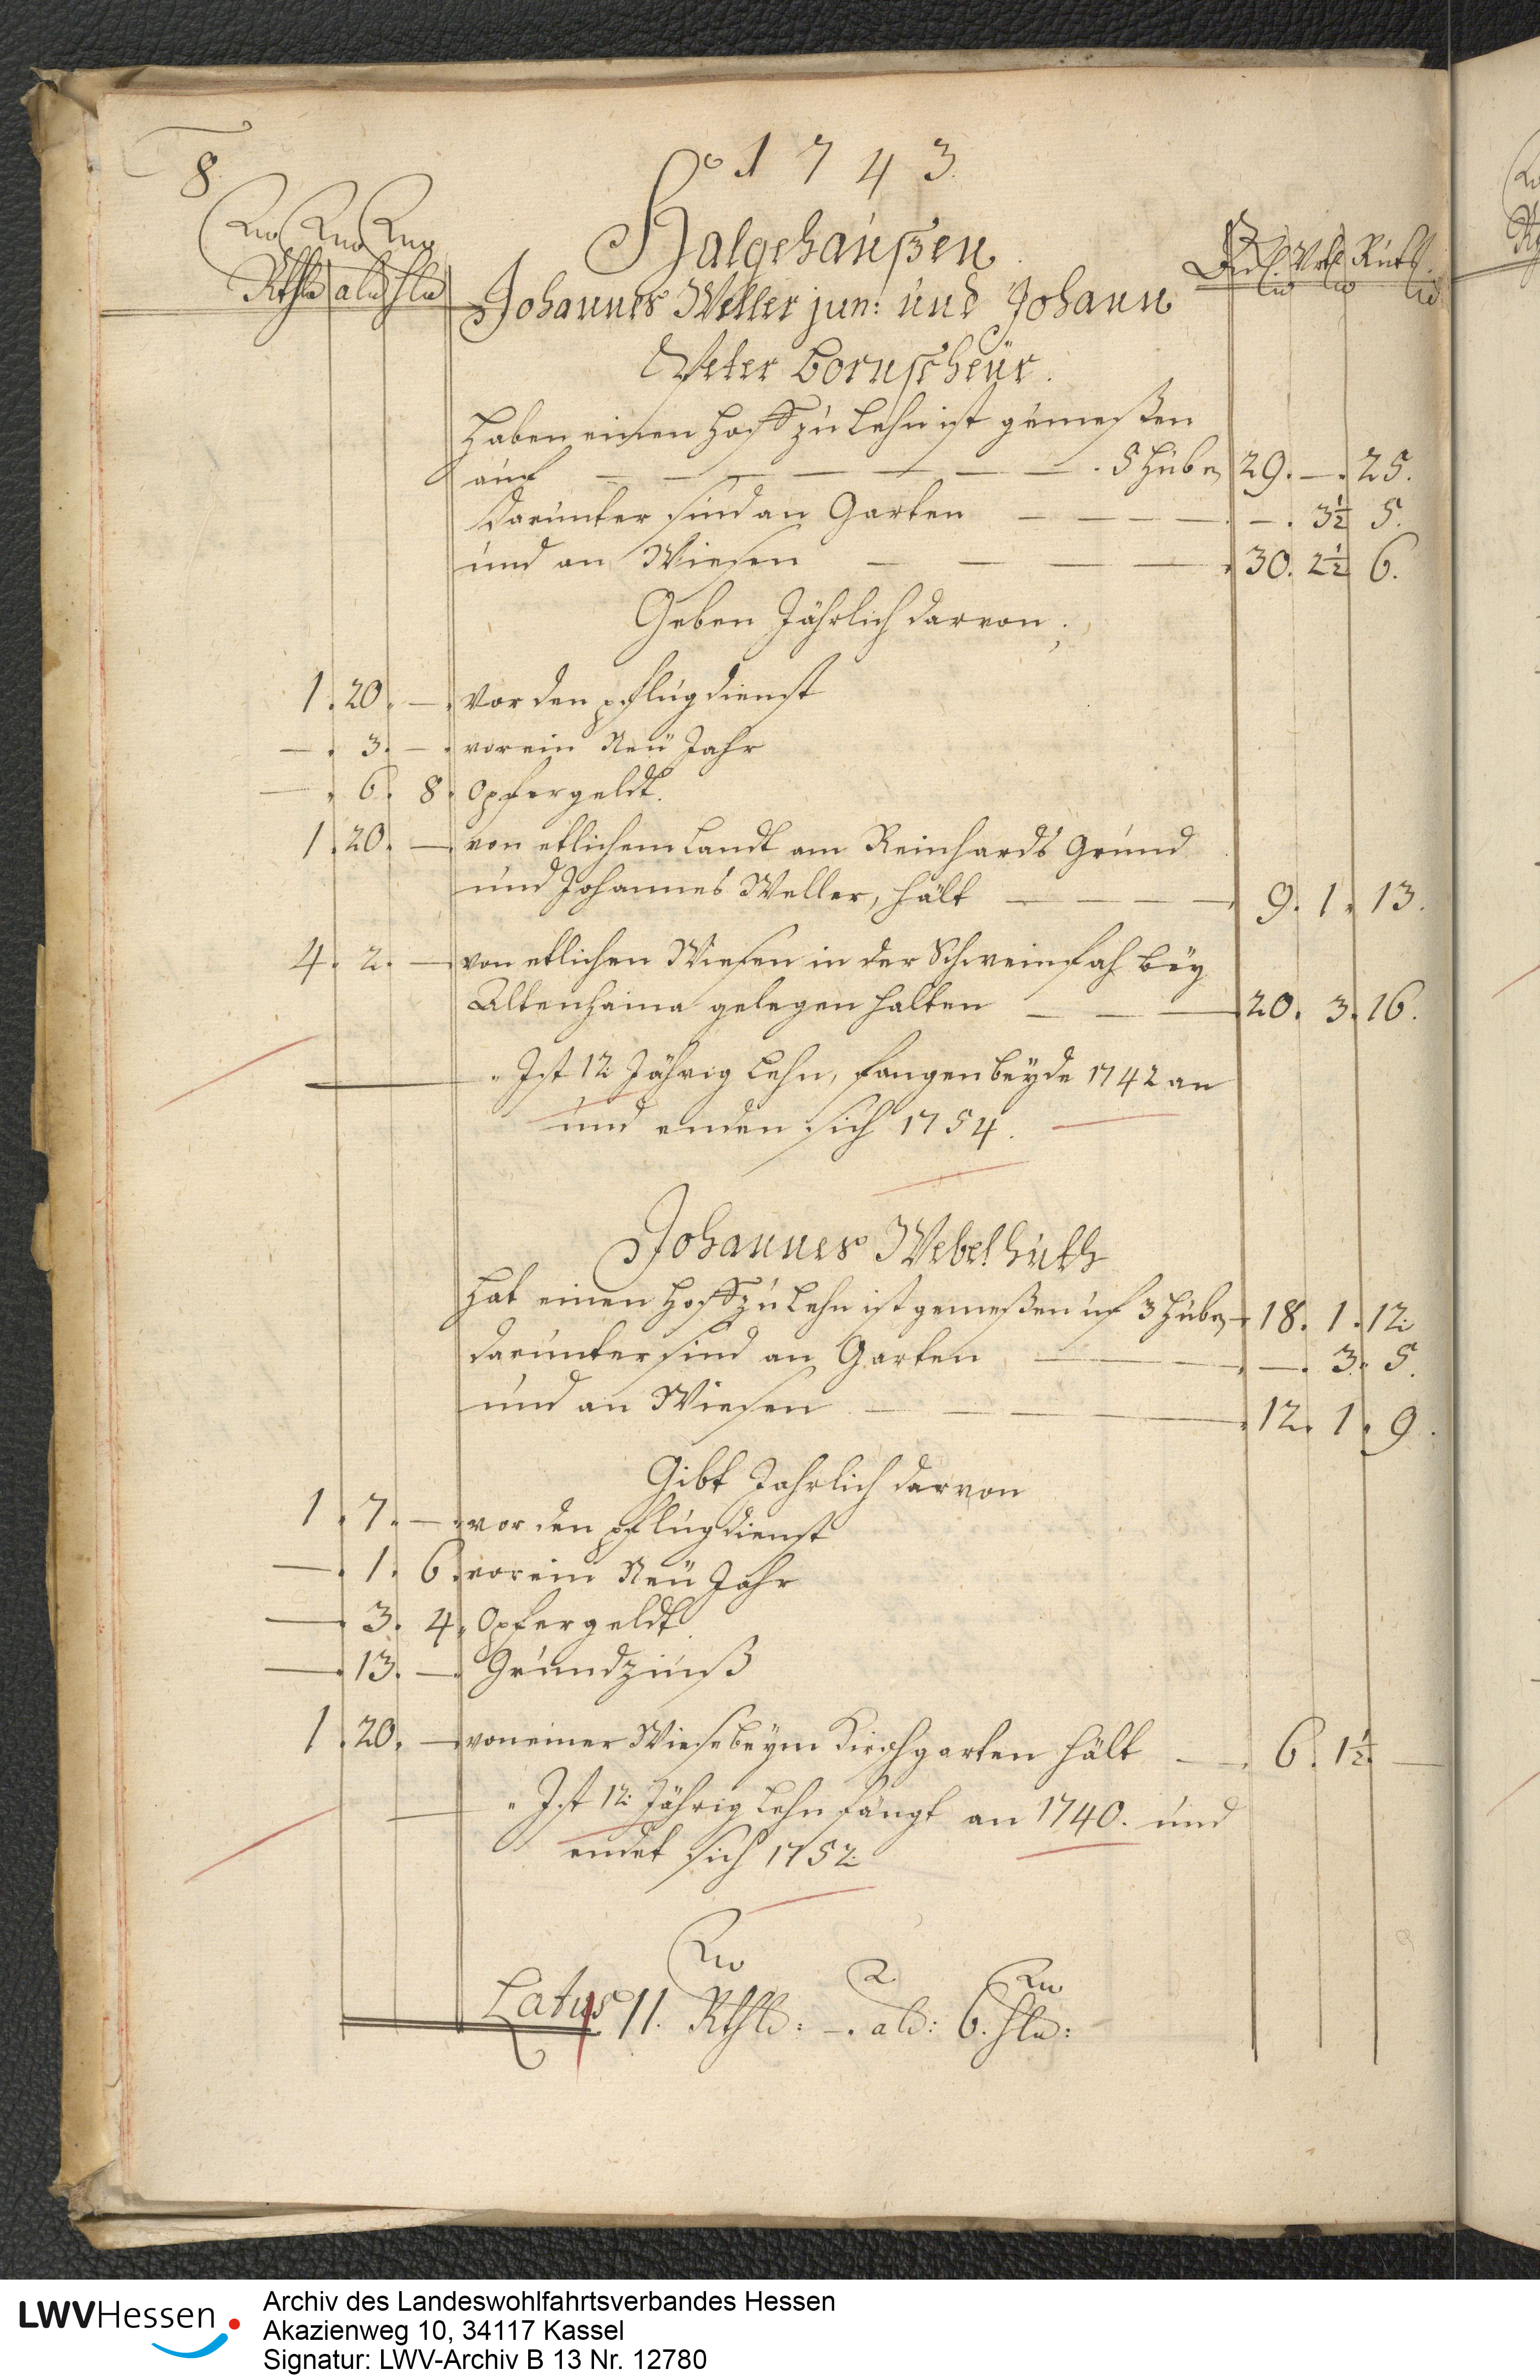 8.
ao 1743.
Halgehaußen
Rthlr alb hlr
Johannes Weller jun: und Johann
Peter Bornscheür.
haben einen Hoff zu Lehn ist gemeßen
auf — — — — — 5 Hube 29. —. 25.
Darunter sind an Garten — — — —. 3½ 5.
und an Wiesen — — — 30. 2½ 6.
Geben Jährlich darvon;
1. 20. —. vor den pflugdienst
—. 3. —. vor ein Neü Jahr
—. 6. 8. Opfergeldt.
1. 20. —. von etlichem Landt am Reinhards Grund
und Johannes Weller, hält — — — — 9. 1. 13.
4. 2. — von etlichen Wiesen in der Schweinfah beÿ
Altenhaina gelegen halten — — — 20. 3. 16.
Ist 12 Jährig Lehn, fangen beÿde 1742 an
und enden sich 1754.
Johannes Webelhuth
hat einen Hoff zu Lehn ist gemeßen uf 3 Hube 18. 1. 12.
darunter sind an Garten — — —. 3. 5.
und an Wiesen — — 12. 1. 9.
Gibt Jahrlich darvon
1. 7. —. vor den pflugdienst
—. 1. 6. vor ein Neü Jahr
—. 3. 4. Opfergeldt
—. 13. —. Grundzinß
1. 20. —. von einer Wiese beÿm Kirchgarten hält — 6. 1½. —
Ist 12 Jährig Lehn fängt an 1740. und
endet sich 1752
Latus 11. Rthlr: —. alb: 6. hlr:
LWVHessen
Archiv des Landeswohlfahrtsverbandes Hessen
Akazienweg 10, 34117 Kassel
Signatur: LWV-Archiv B 13 Nr. 12780